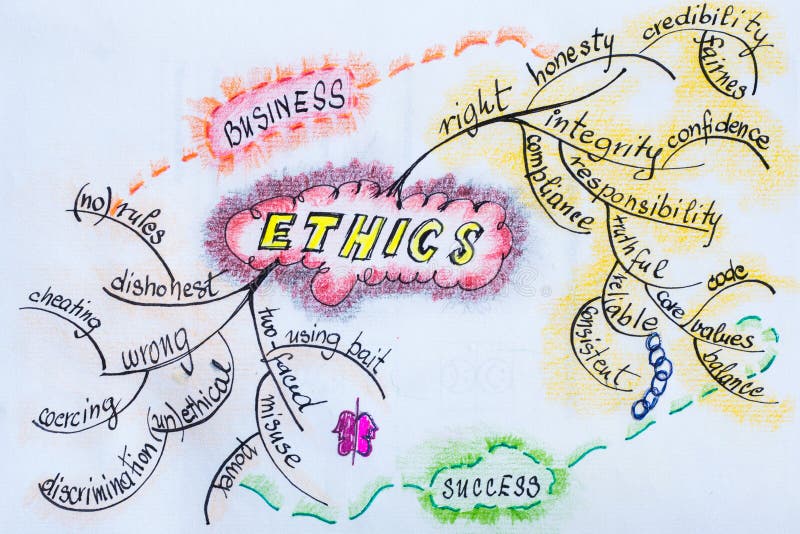 BUSINESS
ETHICS
right
honesty
credibility
fairnes
integrity
confidence
compliance
responsibility
truthful
reliable
consistent
code
core values
balance
(no) rules
dishonest
wrong
cheating
coercing
(un)ethical
discrimination
two-faced
using bait
misuse
power
SUCCESS